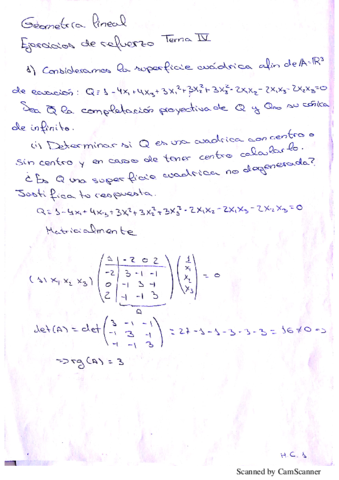 Geometría lineal
Ejercicios de refuerzo Tema IV
1) Consideramos la superficie cuádrica afín de A=R³
de ecuación: Q: 1-4x₁+4x₃+3x₁²+3x₂²+3x₃²-2x₁x₂-2x₁x₃-2x₂x₃=0
Sea Q̄ la completación proyectiva de Q y Q∞ su cónica
de infinito.
(i) Determinar si Q es una cuádrica con centro o
sin centro y en caso de tener centro calcularlo.
¿Es Q una superficie cuádrica no degenerada?
Justifica tu respuesta.
Q=1-4x₁+4x₃+3x₁²+3x₂²+3x₃²-2x₁x₂-2x₁x₃-2x₂x₃=0
Matricialmente
(1 x₁ x₂ x₃) (1 -2 0 2) (1) = 0
(-2 3 -1 -1) (x₁)
(0 -1 3 -1) (x₂)
(2 -1 -1 3) (x₃)
A
det(A) = det (3 -1 -1) = 27-1-1-3-3-3 = 16 ≠ 0 →
(-1 3 -1)
(-1 -1 3)
⇒ rg(A) = 3
H.C. 1
Scanned by CamScanner